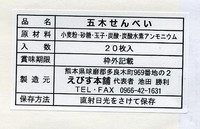 品名 五木せんべい
原材料 小麦粉・砂糖・玉子・炭酸・炭酸水素アンモニウム
入数 20枚入
賞味期限 枠外記載
製造元 熊本県球磨郡多良木町969番地の2
えびす本舗 代表者 池田 勝利
TEL・FAX 0966-42-1631
保存方法 直射日光をさけて保存